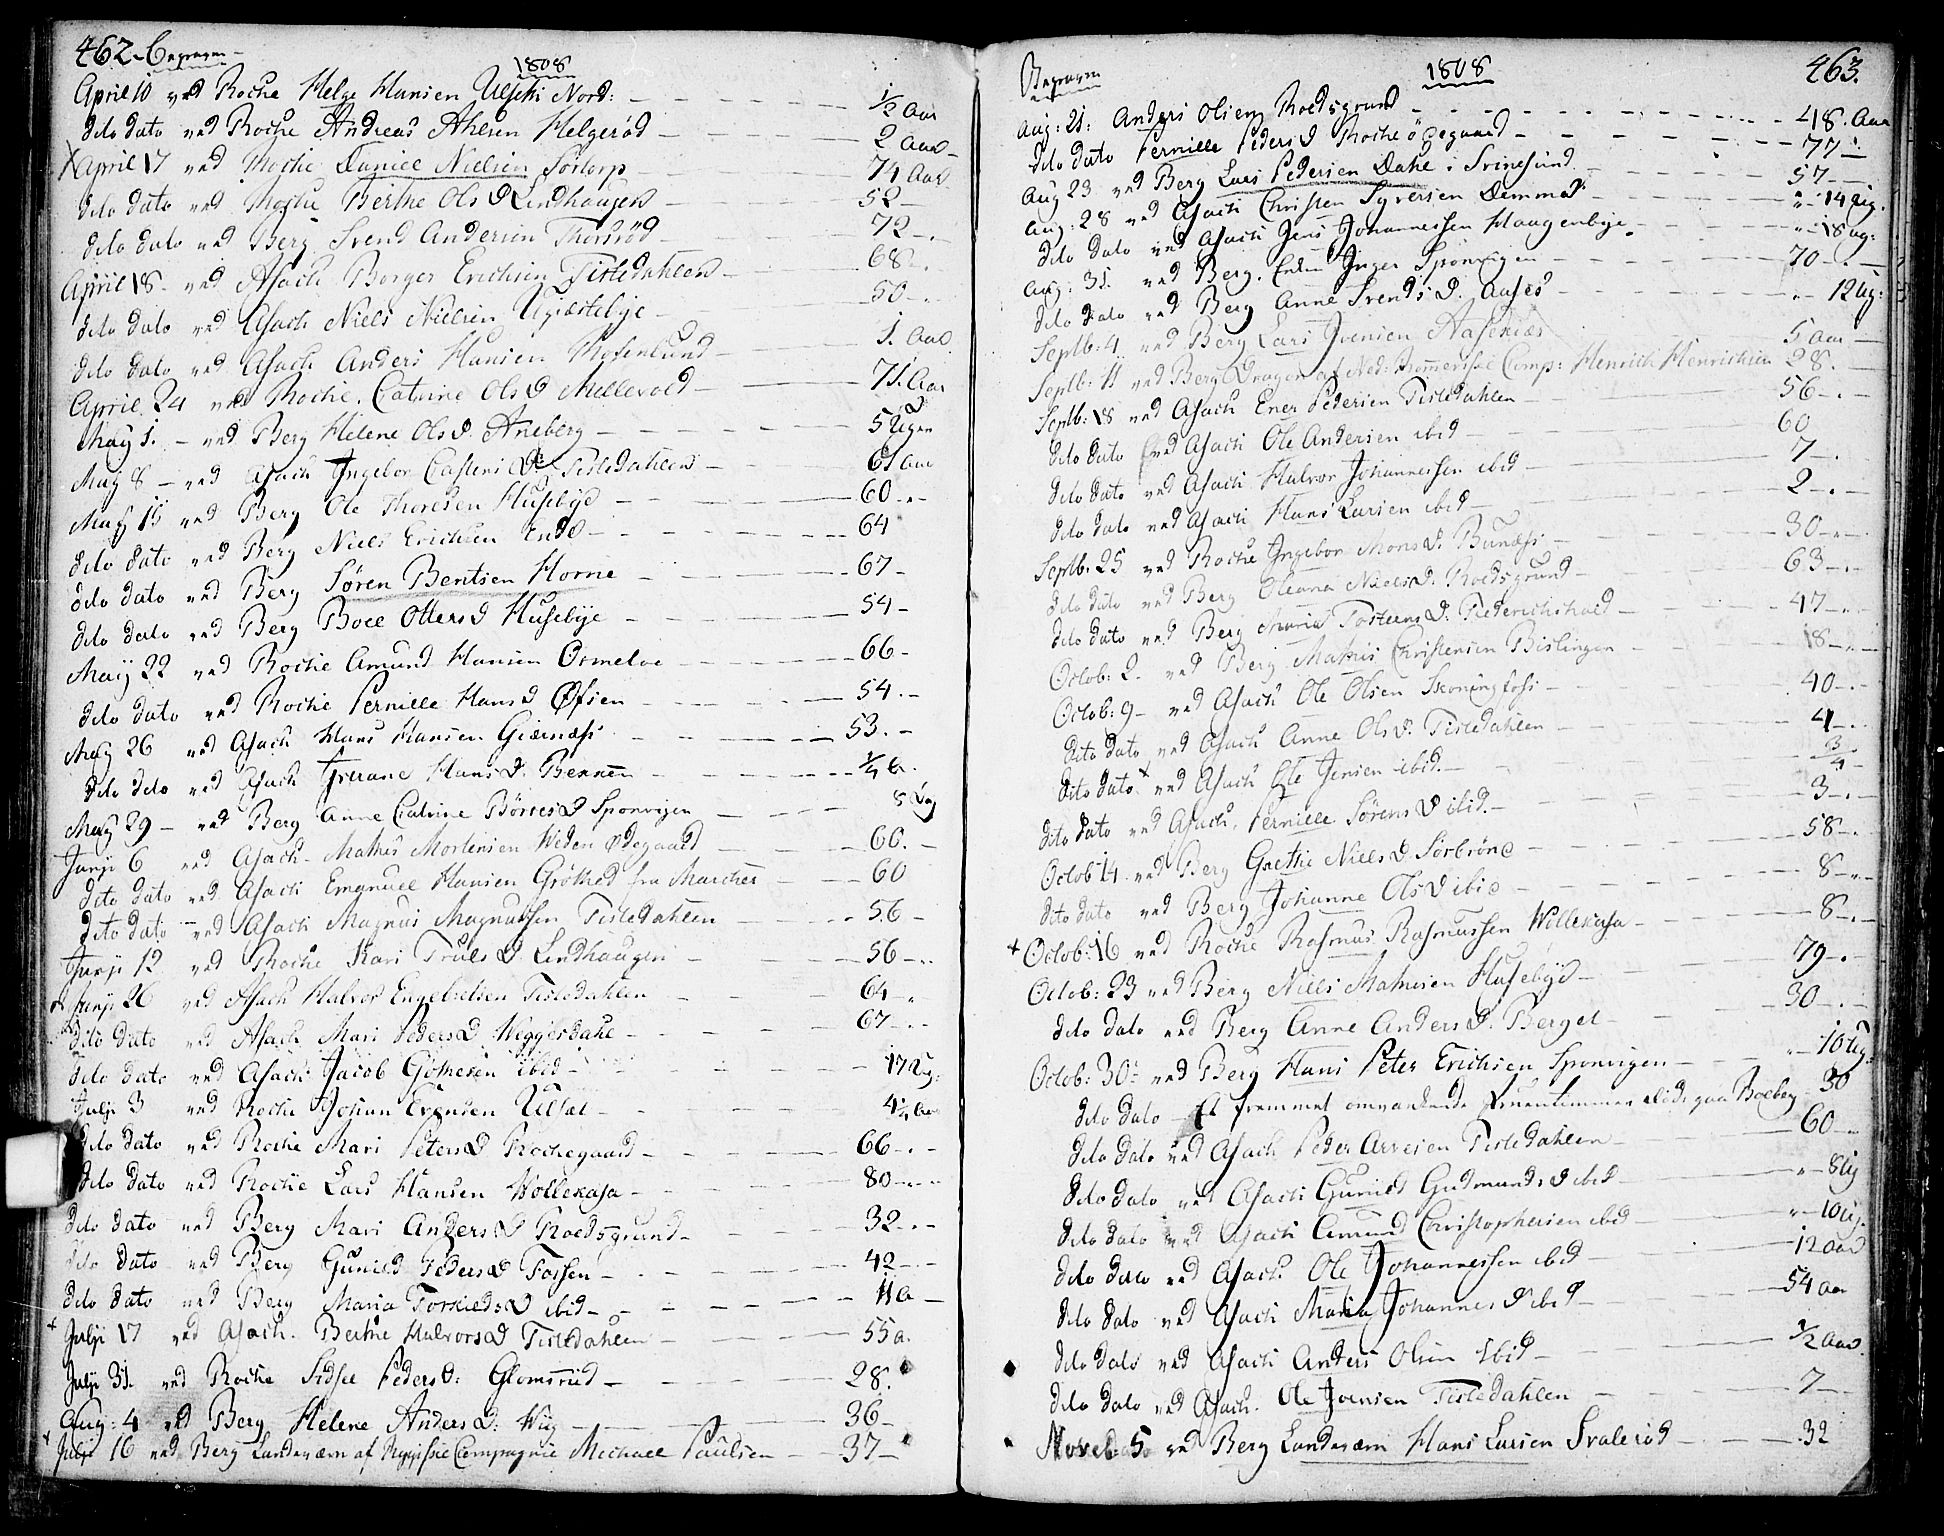 462. Begraven
1808
April 10 ved Rocke Helge Hansen Ulseth Nord: ½ Aar
dito dato ved Rocke Andreas Helgerød 2 Aar
April 17 ved Rocke Daniel Nielsen Sortorp 74 Aar
dito dato ved Rocke Berthe Ols D Lindhaugen 52
dito dato ved Berg Svend Andersen Thorsrød 72
April 18 ved Asach Borger Erichsen Tistedahlen 68
dito dato ved Asach Niels Nielsen 50
dito dato ved Asach Anders Hansen Rosenlund 1. Aar
April 24 ved Rocke Catrine Ols D Mellevold 71. Aar
May 1. ved Berg Helene Ols D. Aneberg 5 Uger
May 8 ved Asach Ingebor Castens D: Tistedahlen 61 Aar
May 15 ved Berg Ole Thoresen Husebye 60
dito dato ved Berg Niels Erichsen Ende 64
dito dato ved Berg Søren Bentsen Horne 67
dito dato ved Berg Boel Otters D Husebye 54
May 22 ved Rocke Amund Hansen Ormeloe 66
dito dato ved Rocke Pernille Hans D Øfsen 54
May 26 ved Asach Hans Hansen Giærnæss 53.
dito dato ved Asach Hans D. ¼ a.
May 29 ved Berg Anne Catrine Børres D Sponvigen 8 Dag
Junji 6 ved Asach Mathis Mortensen Weden Ødegaard 60.
dito dato ved Asach Emanuel Hansen Grøthed fra Marcher 60
dito dato ved Asach Magnus Magnussen Tistedahlen 56
Junji 12 ved Rocke Kari Truls D. Lindhaugen 56
Junji 26 ved Asach Halvor Engebretsen Tistedahlen 64
dito dato ved Asach Mari Peders D. Weggersdahl 67
dito dato ved Asach Jacob Gothesen ibid 17 Ug:
Julji 3 ved Rocke Johan Evensen Ulsæt 4¼ Aar
dito dato ved Rocke Mari Peters D Rockegaard 66
dito dato ved Rocke Lars Hansen Wollekasa 80
dito dato ved Berg Mari Anders D Roedsgrund 32
dito dato ved Berg Gunild Peders D Fossen 42
dito dato ved Berg Maria Torkields D ibid 11 a
Julji 17 ved Asach Berthe Halvors D Tistedahlen 55 a.
Julji 31. ved Rocke Sidsel Peders D: Glomsrud 28.
Aug: 4 ved Berg Helene Anders D: Wiig 36
Julji 16 ved Berg Landeværn af Ryggiske Compagnie Michael Paulsen 37
463.
Begraven
1808
Aug: 21: Anders Olsen Roedsgrund 48. Aar
dito dato Pernille Peders D Rocke Ødegaard 77
Aug 23 ved Berg Lars Pedersen Dahl i Svinesund 57
Aug: 28 ved Asach Christen Syversen 14 Ug.
dito dato ved Asach Jens Johannessen Haagenbye 18 Ug:
Aug: 31. ved Berg. Enken Inger Sponvigen 70
dito dato ved Berg Anne Svends D. 12 Ug:
Septb: 4 ved Berg Lars Joensen 5 Aar
Septb: 11 ved Berg Dragon af Ned: Comp: Henrich Henrichsen 28.
Septb: 18 ved Asach Ener Pedersen Tistedahlen 56
dito dato ved Asach Ole Andersen ibid 60
dito dato ved Asach Halvor Johannessen ibid 7
dito dato ved Asach Hans Larsen ibid 2
Septb: 25 ved Rocke Ingebor Mons D. 30
dito dato ved Berg Oleana Niels D. Roedsgrund 63
dito dato ved Berg Maria Torstens D: Friderichshald 47
Octob: 2. ved Berg Mathis Christensen Bislingen 18
Octob: 9 ved Asach Ole Olsen Skoningfoss 40
dito dato ved Asach Anne Ols D. Tistedahlen 4
dito dato ved Asach Ole Jensen ibid. ¾
dito dato ved Asach, Pernille Sørens D ibid. 3
Octob 14 ved Berg Grethe Niels D. Sørbrøne 58
dito dato ved Berg Johanne Ols D ibid 8
Octob: 16 ved Rocke Rasmus Rasmussen Wollekasa 8
Octob: 23 ved Berg Niels Mathisen Husebye 79
dito dato ved Berg Anne Anders D. Berget 30
Octob: 30 ved Berg Hans Peter Erichsen Sponvigen 10 Ug.
dito dato Et fremmet omvankende Fruentimmer gaa 30
dito dato ved Asach Peder Arvesen Tistedahlen 60
dito dato ved Asach Gunild Gudmunds D ibid 8 Ug
dito dato ved Asach Amund Christophersen ibid 10 Ug.
dito dato ved Asach Ole Johannessen ibid 12 Aar
dito dato ved Asach Maria Johannes D ibid 54 Aar
dito dato ved Asach Anders Olsen ibid ½ Aar.
dito dato ved Asach Ole Joensen Tistedahlen 7
Noveb: 5 ved Berg Landeværn Hans Larsen Svalerød 32